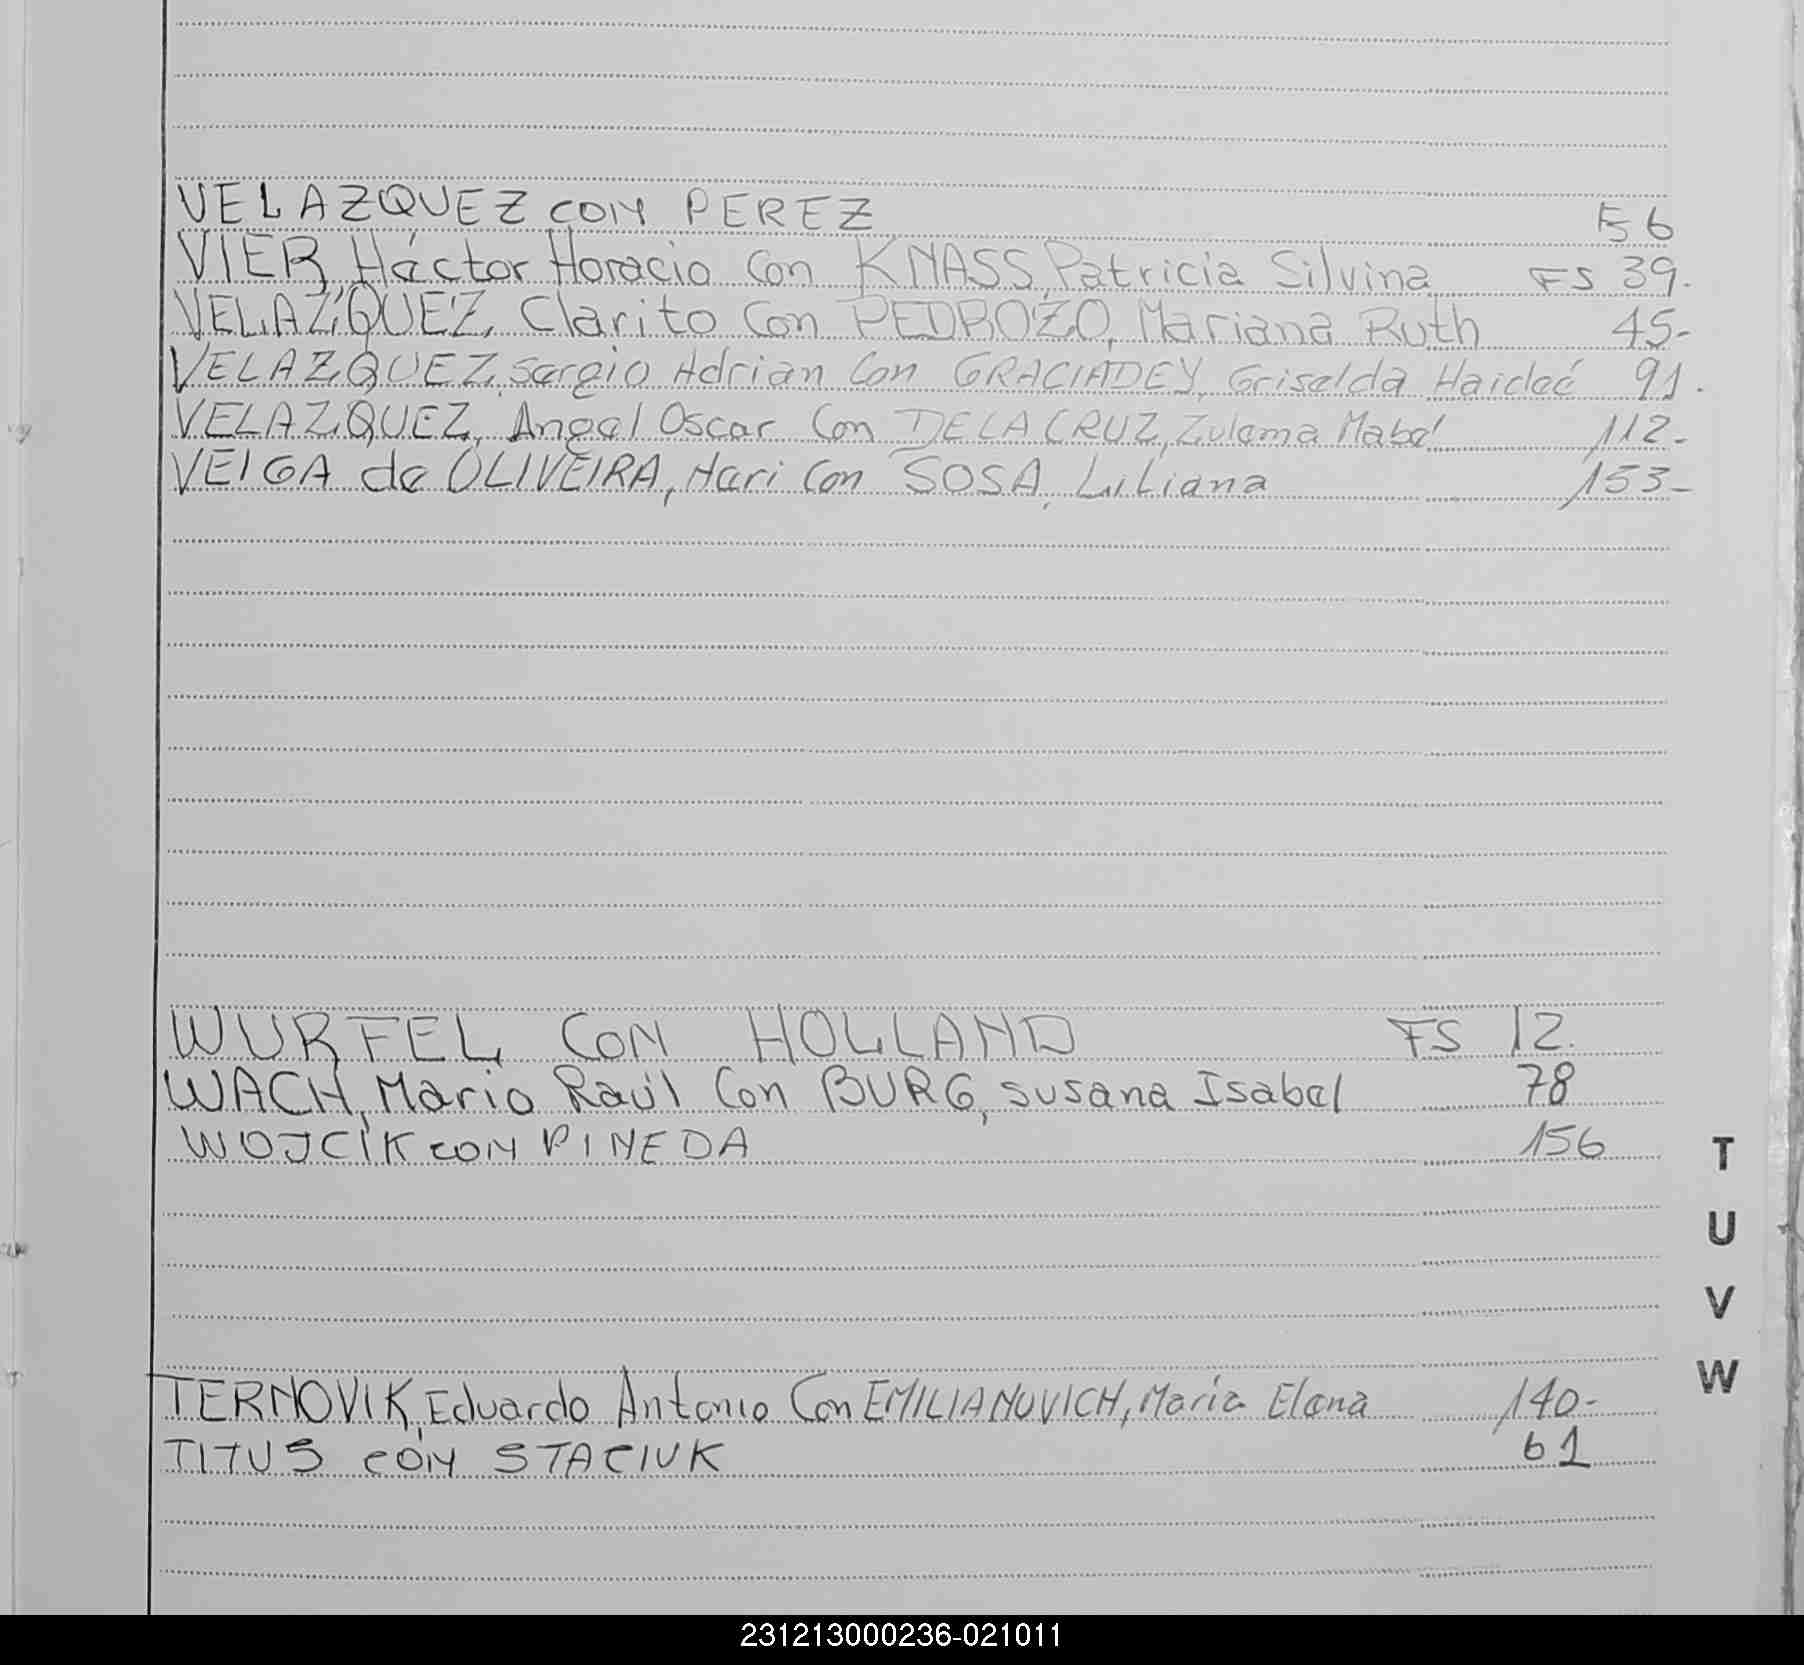 VELAZQUEZ con PEREZ 56
VIER, Héctor Horacio Con KNASS, Patricia Silvina FS 39.
VELAZQUEZ, Clarito Con PEDROZO, Mariana Ruth 45-
VELAZQUEZ, Sergio Adrian Con GRACIADEY, Griselda Haideé 91.
VELAZQUEZ, Angel Oscar Con DE LA CRUZ, Zulema Mabel 112-
VEIGA de OLIVEIRA, Hari Con SOSA, Liliana 153-
WURFEL CON HOLLAND FS 12.
WACH, Mario Raúl Con BURG, Susana Isabel 78
WOJCIK con PINEDA 156
T
U
V
W
TERNOVIK, Eduardo Antonio Con EMILIANUVICH, Maria Elena 140-
TITUS con STACIUK 61
231213000236-021011